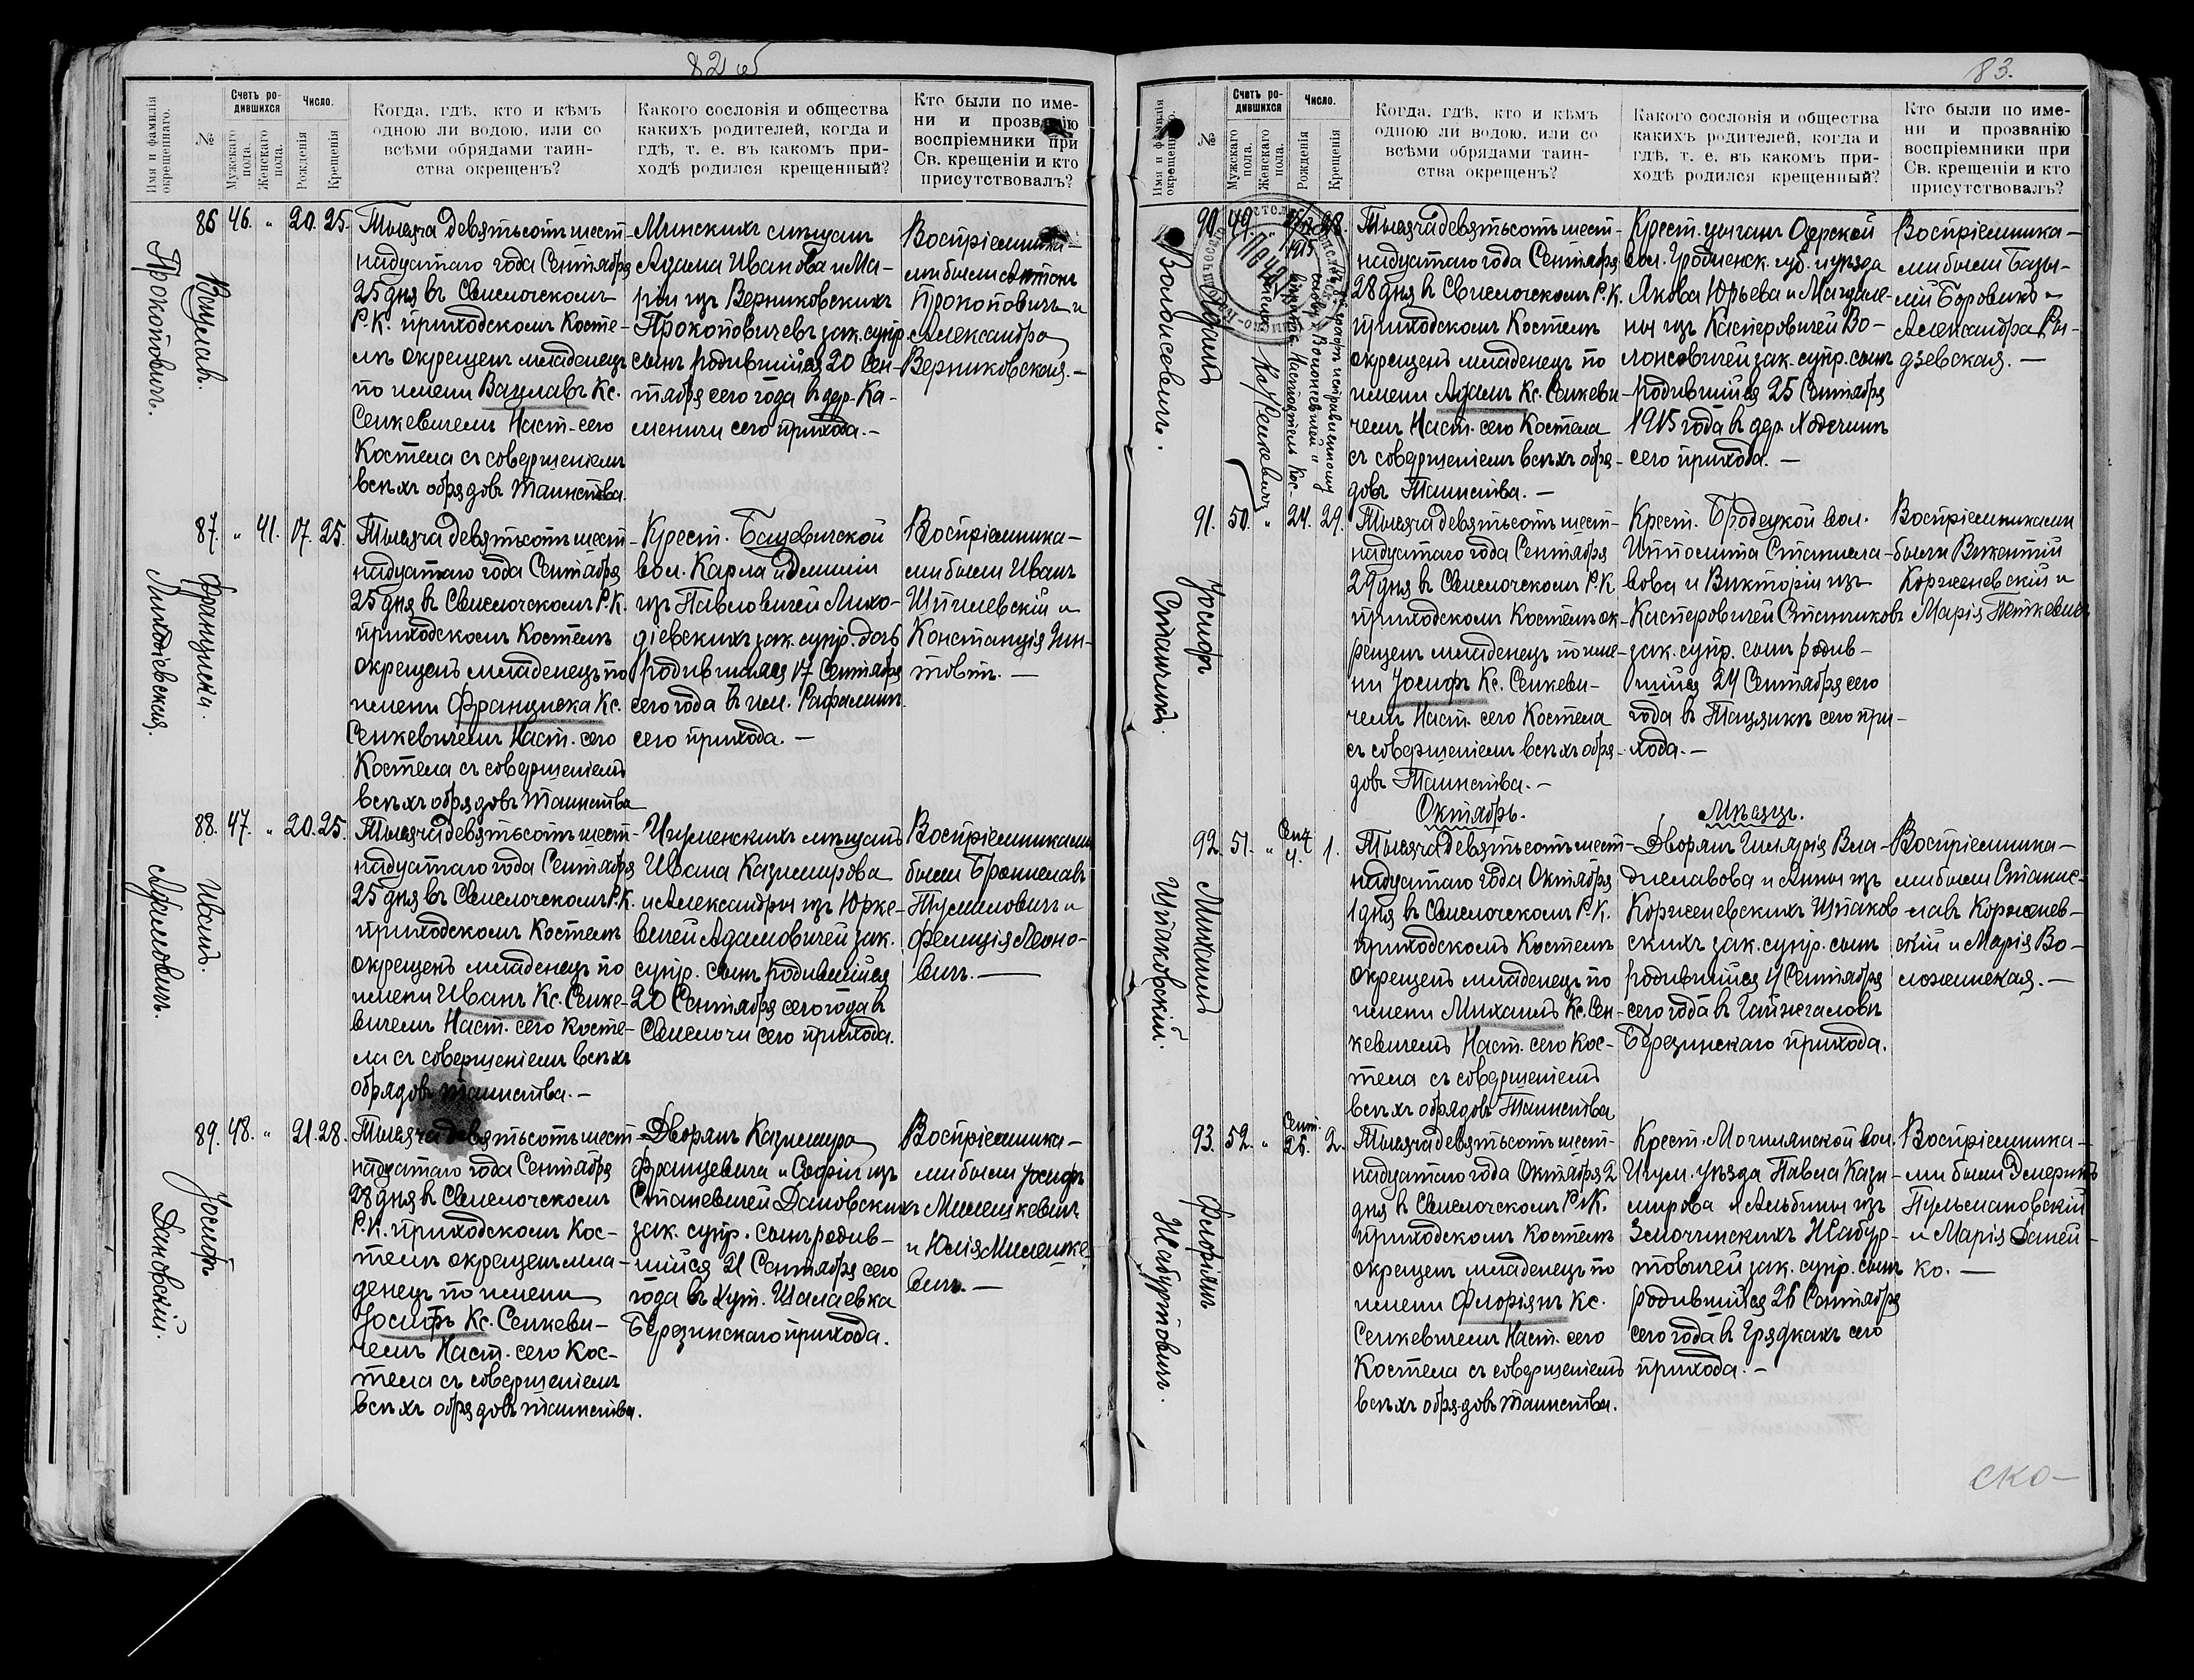 82 об
Имя и фамилія окрещеннаго.
№
Счетъ родившихся
Мужскаго пола.
Женскаго пола.
Число.
Рожденія
Крещенія
Когда, гдѣ, кто и кѣмъ
одною ли водою, или со
всѣми обрядами таин-
ства окрещенъ?
Какого сословія и общества
какихъ родителей, когда и
гдѣ, т. е. въ какомъ при-
ходѣ родился крещенный?
Кто были по име-
ни и прозванію
воспріемники при
Св. крещеніи и кто
присутствовалъ?
Вацлав.
Прокопович.
86 46. „ 20. 25.
Тысяча девятьсотъ шест-
надцатаго года Сентября
25 дня въ Свислочском
Р.К. приходском Косте-
лѣ окрещен младенец
по имени Вацлавъ Кс.
Сенкевичем Наст. сего
Костела съ совершеніем
всѣхъ обрядов Таинства.
Минских мѣщан
Адама Иванова и Ма-
ріи изъ Верниковских
Прокоповичев зак. супр.
сынъ родившійся 20 Сен-
тября сего года в дер. Ка-
меничи сего прихода.-
Воспріемника-
ми были Антон
Прокопович и
Александра
Верниковская.-
Франциска.
Лиходіевская.
87. „ 41. 17. 25.
Тысяча девятьсотъ шест-
надцатаго года Сентября
25 дня въ Свислочском Р.К.
приходском Костелѣ
окрещенъ младенец по
имени Франциска Кс.
Сенкевичем Наст. сего
Костела съ совершеніем
всѣхъ обрядовъ Таинства
Крест. Бацевичской
вол. Карла и Эмиліи
изъ Павловичей Лихо-
діевских зак. супр. дочь
родившаяся 17 Сентября
сего года в им. Рафалин
сего прихода.-
Воспріемника-
ми были Иван
Шпилевскій и
Констанція Гин-
товт.-
Иван.
Адамович.
88. 47. „ 20. 25.
Тысяча девятьсотъ шест-
надцатаго года Сентября
25 дня въ Свислочском Р.К.
приходском Костелѣ
окрещенъ младенец по
имени Иванъ Кс. Сенке-
вичем Наст. сего Косте-
ла съ совершеніем всѣхъ
обрядовъ таинства.-
Игуменских мѣщан
Ивана Казимирова
и Александры изъ Юрке-
вичей Адамовичей зак.
супр. сынъ родившійся
20 Сентября сего года в
Свислочи сего прихода.
Воспріемниками
были Брониславъ
Тумилович и
Фелиція Леоно-
вич.
Іосифъ
Дановскій.
89. 48. „ 21. 28.
Тысяча девятьсотъ шест-
надцатаго года Сентября
28 дня въ Свислочском
Р.К. приходском Кос-
телѣ окрещенъ мла-
денец по имени
Іосифъ Кс. Сенкеви-
чем Наст. сего Кос-
тела съ совершеніем
всѣхъ обрядовъ таинства.
Дворян Казимира
Францевича и Софіи изъ
Станевичей Дановских
зак. супр. сынъ родив-
шійся 21 Сентября сего
года въ хут. Шалаевка
Березинскаго прихода.
Воспріемника-
ми были Іосифъ
Милешкевич
и Юлія Милешке-
вич.-
83.
Имя и фамилія окрещеннаго.
№
Счетъ родившихся
Мужскаго пола.
Женскаго пола.
Число.
Рожденія
Крещенія
Когда, гдѣ, кто и кѣмъ
одною ли водою, или со
всѣми обрядами таин-
ства окрещенъ?
Какого сословія и общества
какихъ родителей, когда и
гдѣ, т. е. въ какомъ при-
ходѣ родился крещенный?
Кто были по име-
ни и прозванію
воспріемники при
Св. крещеніи и кто
присутствовалъ?
Адамъ
Волонсевич.
90. 49. 28.
1915
Тысяча девятьсотъ шест-
надцатаго года Сентября
28 дня въ Свислочском Р.К.
приходском Костелѣ
окрещенъ младенец по
имени Адамъ Кс. Сенкеви-
чем Наст. сего Костела
съ совершеніем всѣхъ обря-
довъ Таинства.-
Крест. цыган Озерской
вол. Гродненск. губ. и уѣзда
Якова Юрьева и Магдале-
ны изъ Касперовичей Во-
лонсевичей зак. супр. сынъ
родившійся 25 Сентября
1915 года в дер. Ходечин
сего прихода.-
Воспріемника-
ми были Базы-
лій Боровикъ и
Александра Ры-
дзевская.-
Іосифъ
Станчик.
91. 50. „ 24. 29.
Тысяча девятьсотъ шест-
надцатаго года Сентября
29 дня въ Свислочском Р.К.
приходском Костелѣ ок-
рещенъ младенец по име-
ни Іосифъ Кс. Сенкеви-
чем Наст. сего Костела
съ совершеніем всѣхъ обря-
довъ Таинства.-
Крест. Бродецкой вол.
Ипполита Станисла-
вова и Викторіи изъ
Касперовичей Станчиковъ
зак. супр. сынъ родив-
шійся 24 Сентября сего
года въ Тацянкѣ сего при-
хода.-
Воспріемниками
были Викентій
Корженевскій и
Марія Петкевич
Октябрь. Мѣсяц.
Михаилъ
Шпаковскій.
92. 51. „ Сент 4. 1.
Тысяча девятьсотъ шест-
надцатаго года Октября
1 дня въ Свислочском Р.К.
приходском Костелѣ
окрещенъ младенец по
имени Михаилъ Кс. Сен-
кевичем Наст. сего Кос-
тела съ совершеніем
всѣхъ обрядовъ Таинства
Дворян Гилярія Вла-
диславова и Анны изъ
Корженевских Шпаков-
ских зак. супр. сынъ
родившійся 4 Сентября
сего года в Гайнегаловѣ
Березинскаго прихода.
Воспріемника-
ми были Станис-
лавъ Корженев-
скій и Марія Во-
ложинская.-
Флоріян
Жабуртович.
93. 52. „ Сент. 26. 2.
Тысяча девятьсотъ шест-
надцатаго года Октября 2
дня въ Свислочском Р.К.
приходском Костелѣ
окрещенъ младенец по
имени Флоріянъ Кс.
Сенкевичем Наст. сего
Костела съ совершеніем
всѣхъ обрядовъ таинства.
Крест. Могилянской вол.
Игум. уѣзда Павла Кази-
мирова и Альбины изъ
Злочинских Жабур-
товичей зак. супр. сынъ
родившійся 26 Сентября
сего года в Грядках сего
прихода.-
Воспріемника-
ми были Эмерикъ
Пульмановскій
и Марія Даней-
ко.-
ско-